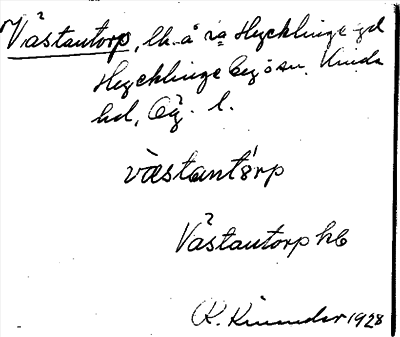 Västantorp, lh. å ra Hycklinge gd
Hycklinge by o sn. Kinda
hd, Ög. l.
væstantórp
Västantorp hb
K. Kinnander 1928